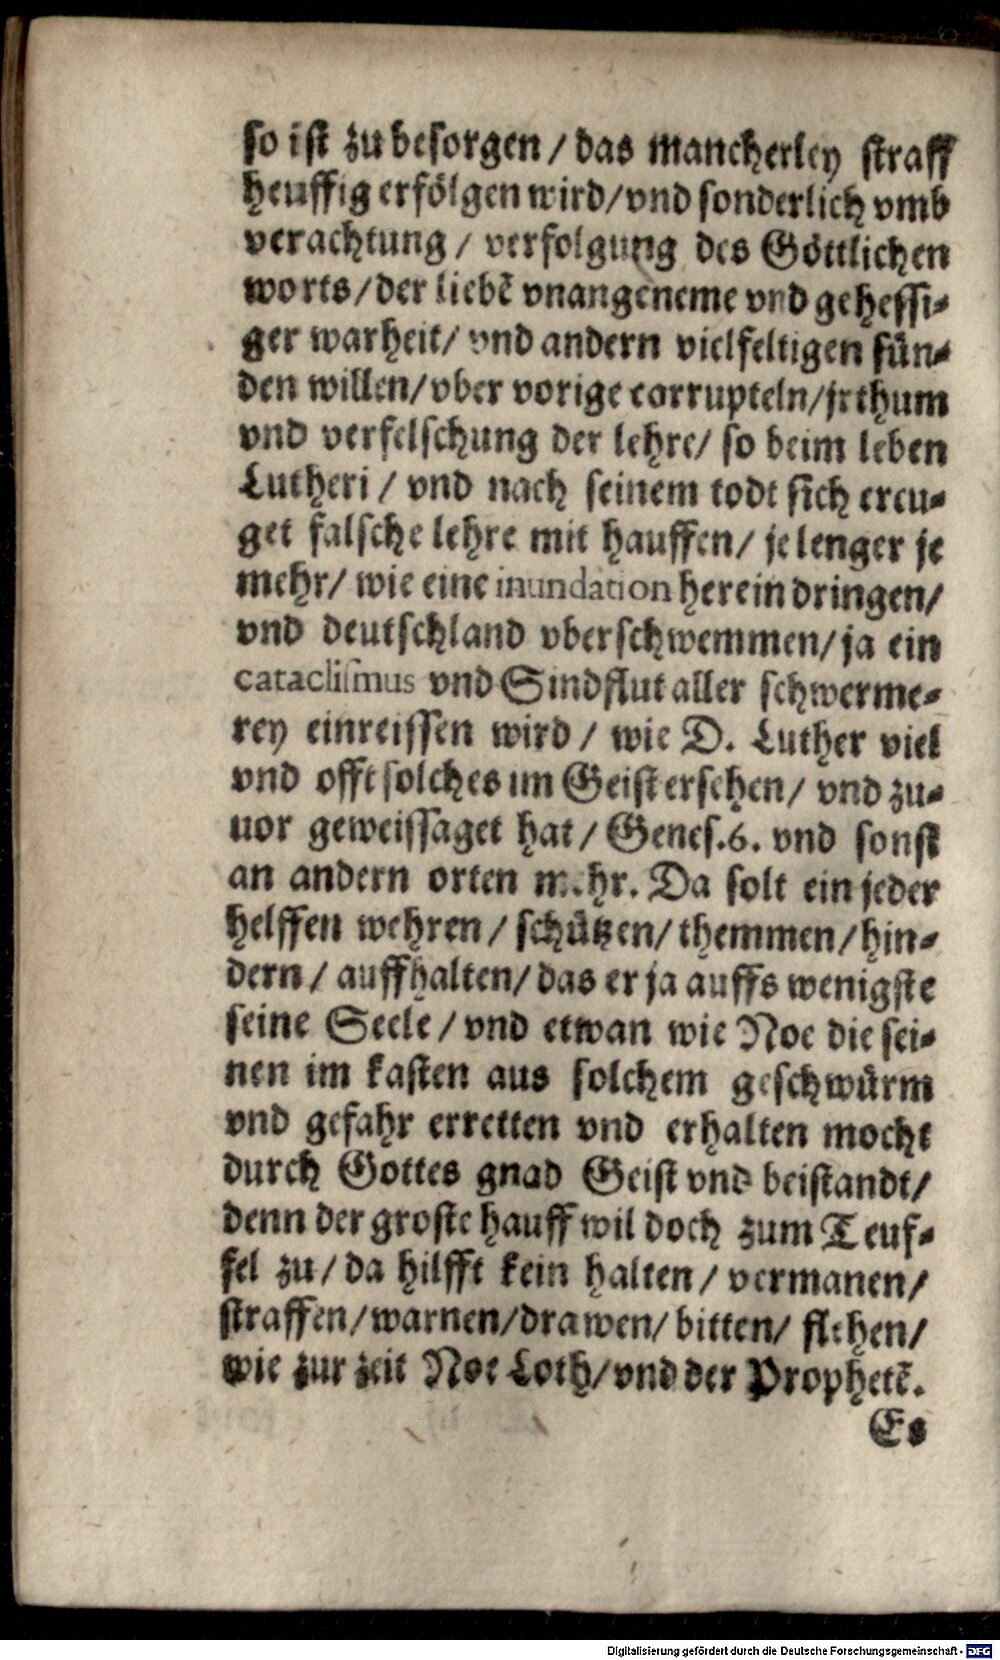 so ist zu besorgen / das mancherley straff
heuffig erfölgen wird / vnd sonderlich vmb
verachtung / verfolgung des Göttlichen
worts / der liebẽ vnangeneme vnd gehessi⸗
ger warheit / vnd andern vielfeltigen sün⸗
den willen / vber vorige corrupteln / jrthum
vnd verfelschung der lehre / so beim leben
Lutheri / vnd nach seinem todt sich ereu⸗
get falsche lehre mit hauffen / je lenger je
mehr / wie eine inundation herein dringen /
vnd deutschland vberschwemmen / ja ein
cataclismus vnd Sindflut aller schwerme⸗
rey einreissen wird / wie D. Luther viel
vnd offt solches im Geist ersehen / vnd zu⸗
uor geweissaget hat / Genes. 6. vnd sonst
an andern orten mehr. Da solt ein jeder
helffen wehren / schützen / themmen / hin⸗
dern / auffhalten / das er ja auffs wenigste
seine Seele / vnd etwan wie Noe die sei⸗
nen im kasten aus solchem geschwürm
vnd gefahr erretten vnd erhalten mocht
durch Gottes gnad Geist vnd beistandt /
denn der groste hauff wil doch zum Teuf⸗
fel zu / da hilfft kein halten / vermanen /
straffen / warnen / drawen / bitten / flehen /
wie zur zeit Noe Loth / vnd der Prophetẽ.
Es
Digitalisierung gefördert durch die Deutsche Forschungsgemeinschaft - DFG